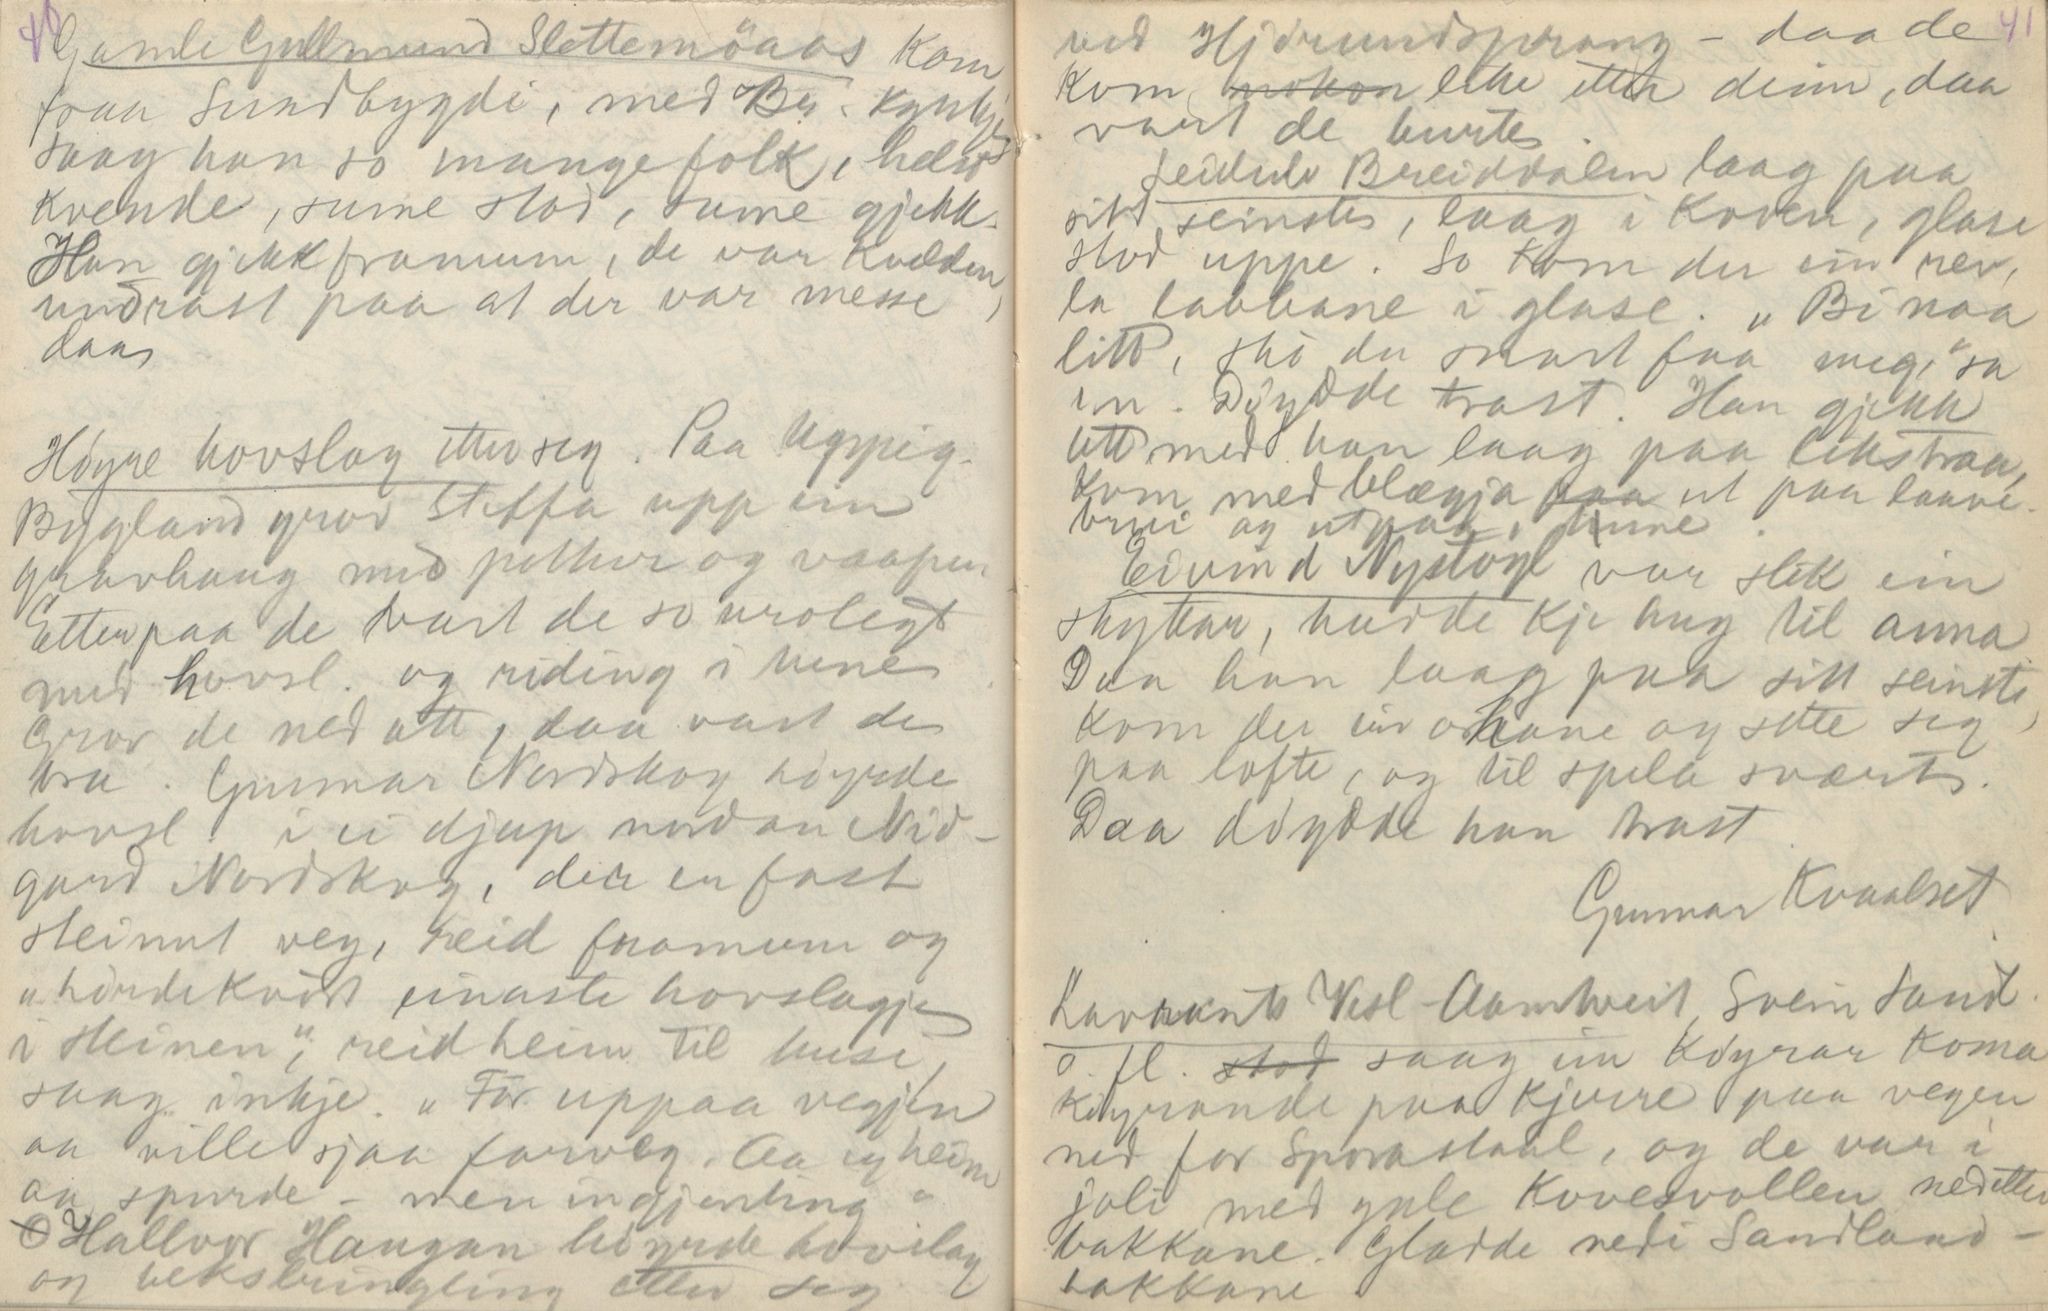 40
Gamle Gullmund Slettemöaas kom
fraa Sundbygdi, med By. kyrkje
saag han so mange folk, helst
kvende, sume stod, sume gjekk.
Han gjekk framum, de var kvelden,
undrast paa at der var messe
daa
Höyre hovslag etter seg. Paa Uppig-
Bygland grov Steffa upp ein
gravhaug med potter og vaapen.
Etterpaa de vart de so uroleg
med hovsl. og riding i tune
Grov de ned att, daa vart de
bra. Gunnar Nordskog höyrde
hovsl. i ei djup nordan Nid-
gard Nordskog, der er fast
steinut veg, reid framum og
"hörde kvart einaste hovslagje
i steinen", reid heim til huse,
saag inkje. "Fór uppaa vegjen
aa ville sjaa farveg. Aa eg heim
aa spurde - men ingjenting"
Hallvor Haugan höyrde hovslag
og beksleringling etter seg
41
ved Hjörundsprang - daa de
kom nokon like etter deim, daa
vart de burte.
Leidulv Breiddalen laag paa
sitt seinste, laag i koven, glase
stod uppe. So kom der ein rev,
la labbane i glase. "Bi naa
litt, ska du snart faa meg," sa
en. Döydde trast. Han gjekk
att med han laag paa likstraa,
kom med blægja paa ut paa laave-
brui og utpaa tune.
Eivind Nystögl var slik ein
skyttar, hadde kje hug til anna
Daa han laag paa sitt seinste,
kom der ein orhane og sette seg
paa lofte, og til spela svært.
Daa döydde han trast
Gunnar Kvaalset
Vesl-Aamtveit, Svein Sand
o. fl. stod saag ein köyrar koma
köyrande paa kjerre paa vegen
ned for Sporastaul, og de var i
joli med gule Kovesvollen nedetter
bakkane. Gladde nedi Sandland-
bakkane